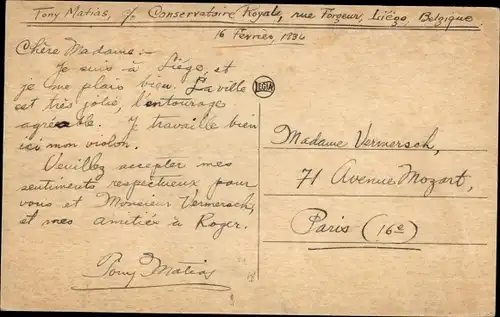 Tony Matias, c/o Conservatoire Royale, rue Forgeur, Liége, Belgique
16 Fevrier, 1934
Chère Madame:-
Je suis à Liége, et
je me plais bien. La ville
est très jolie, l'entourage
agréable. Je travaille bien
ici mon violon.
Veuillez accepter mes
sentiments respectueux pour
vous et Monsieur Vermersch,
et mes amitiés à Roger.
Tony Matias
LEGIA
Madame Vermersch,
71 Avenue Mozart,
Paris (16e)